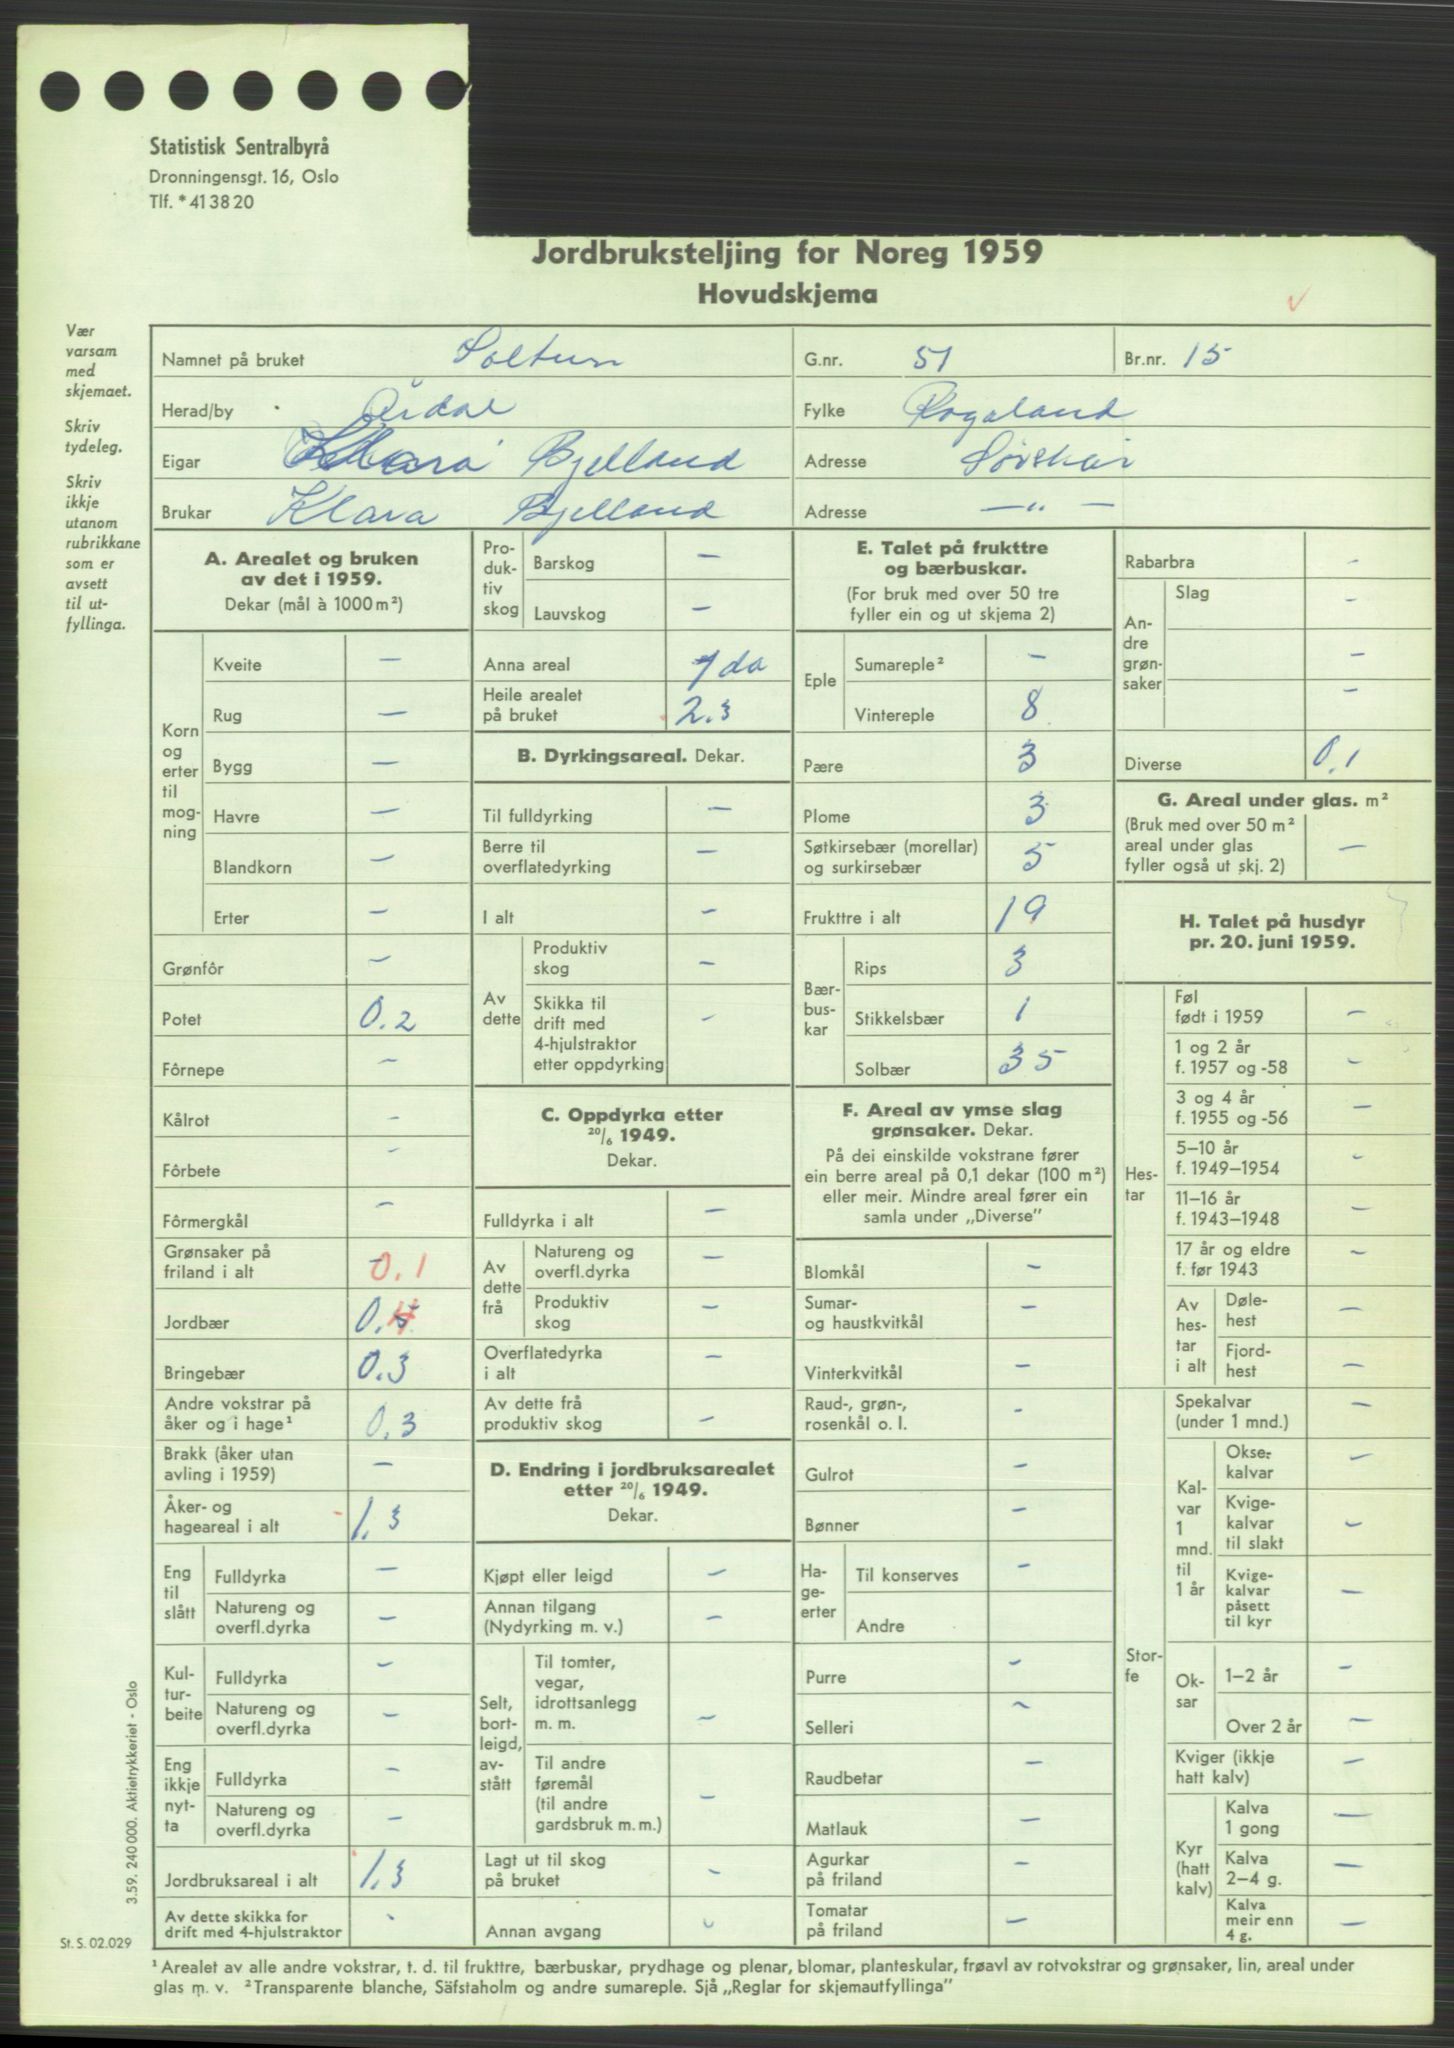 Statistisk Sentralbyrå
Dronningensgt. 16, Oslo
Tlf. * 41 38 20
Jordbruksteljing for Noreg 1959
Hovudskjema
Vær
varsam
med
skjemaet.
Skriv
tydeleg.
Skriv
ikkje
utanom
rubrikkane
som er
avsett
til ut-
fyllinga.
Namnet på bruket Soltun G.nr. 51 Br.nr. 15
Herad/by Årdal Fylke Rogaland
Eigar Klara Bjelland Adresse
Brukar Klara Bjelland Adresse — " —
A. Arealet og bruken
av det i 1959.
Dekar (mål à 1000 m²)
Korn
og
erter
til
mog-
ning
Kveite –
Rug –
Bygg –
Havre –
Blandkorn –
Erter –
Grønfôr –
Potet 0.2
Fôrnepe –
Kålrot –
Fôrbete –
Fôrmergkål –
Grønsaker på
friland i alt 0.1
Jordbær 0.4
Bringebær 0.3
Andre vokstrar på
åker og i hage¹ 0.3
Brakk (åker utan
avling i 1959) –
Åker- og
hageareal i alt 1.3
Eng
til
slått
Fulldyrka –
Natureng og
overfl.dyrka –
Kul-
tur-
beite
Fulldyrka –
Natureng og
overfl.dyrka –
Eng
ikkje
nyt-
ta
Fulldyrka –
Natureng og
overfl.dyrka –
Jordbruksareal i alt 1.3
Av dette skikka for
drift med 4-hjulstraktor -
Pro-
duk-
tiv
skog
Barskog –
Lauvskog –
Anna areal 1 da
Heile arealet
på bruket 2.3
B. Dyrkingsareal. Dekar.
Til fulldyrking –
Berre til
overflatedyrking –
I alt –
Av
dette
Produktiv
skog –
Skikka til
drift med
4-hjulstraktor
etter oppdyrking –
C. Oppdyrka etter
20/6 1949.
Dekar.
Fulldyrka i alt –
Av
dette
frå
Natureng og
overfl.dyrka –
Produktiv
skog –
Overflatedyrka
i alt –
Av dette frå
produktiv skog –
D. Endring i jordbruksarealet
etter 20/6 1949.
Dekar.
Kjøpt eller leigd –
Annan tilgang
(Nydyrking m. v.) –
Selt,
bort-
leigd,
av-
stått
Til tomter,
vegar,
idrottsanlegg
m. m. –
Til andre
føremål
(til andre
gardsbruk m. m.) –
Lagt ut til skog
på bruket –
Annan avgang –
E. Talet på frukttre
og bærbuskar.
(For bruk med over 50 tre
fyller ein og ut skjema 2)
Eple
Sumareple² –
Vintereple 8
Pære 3
Plome 3
Søtkirsebær (morellar)
og surkirsebær 5
Frukttre i alt 19
Bær-
bus-
kar
Rips 3
Stikkelsbær 1
Solbær 35
F. Areal av ymse slag
grønsaker. Dekar.
På dei einskilde vokstrane fører
ein berre areal på 0,1 dekar (100 m²)
eller meir. Mindre areal fører ein
samla under „Diverse”
Blomkål –
Sumar-
og haustkvitkål –
Vinterkvitkål –
Raud-, grøn-,
rosenkål o. l. –
Gulrot –
Bønner –
Ha-
ge-
erter
Til konserves –
Andre
Purre –
Selleri –
Raudbetar –
Matlauk –
Agurkar
på friland –
Tomatar
på friland –
Rabarbra –
An-
dre
grøn-
saker
Slag –
–
–
Diverse 0.1
G. Areal under glas. m²
(Bruk med over 50 m²
areal under glas
fyller også ut skj. 2) –
H. Talet på husdyr
pr. 20. juni 1959.
Hes-
tar
Føl
født i 1959 –
1 og 2 år
f. 1957 og -58 –
3 og 4 år
f. 1955 og -56 –
5–10 år
f. 1949–1954 –
11–16 år
f. 1943–1948 –
17 år og eldre
f. før 1943 –
Av
hes-
tar
i alt
Døle-
hest –
Fjord-
hest –
Stor-
fe
Spekalvar
(under 1 mnd.) –
Kal-
var
1
mnd.
til
1 år
Okse-
kalvar –
Kvige-
kalvar
til slakt –
Kvige-
kalvar
påsett
til kyr –
Ok-
sar
1–2 år –
Over 2 år –
Kviger (ikkje
hatt kalv) –
Kyr
(hatt
kalv)
Kalva
1 gong –
Kalva
2–4 g. –
Kalva
meir enn
4 g. –
3.59. 240 000. Aktietrykkeriet - Oslo
St. S. 02.029
¹ Arealet av alle andre vokstrar, t. d. til frukttre, bærbuskar, prydhage og plenar, blomar, planteskular, frøavl av rotvokstrar og grønsaker, lin, areal under
glas m. v. ² Transparente blanche, Säfstaholm og andre sumareple. Sjå „Reglar for skjemautfyllinga”